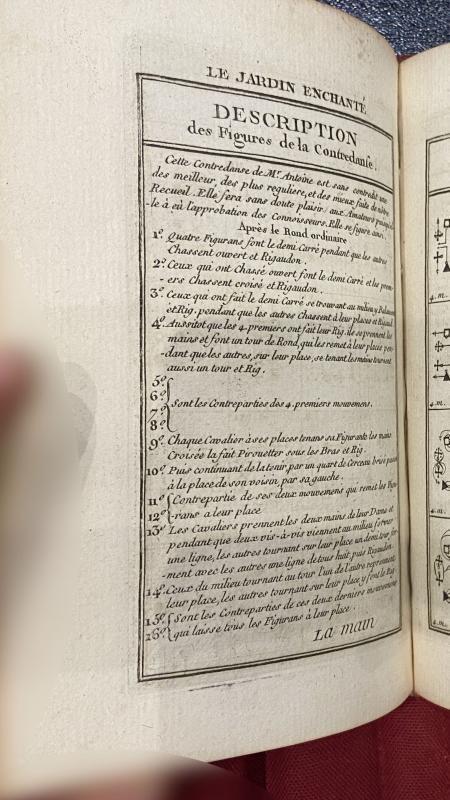 LE JARDIN ENCHANTÉ
DESCRIPTION
des Figures de la Contredanse.
Cette Contredanse de Mr. Antoine est sans contredit une
des meilleur, des plus reguliere, et des mieux faite de nôtre
Recueil. Elle fera sans doute plaisir aux Amateurs puisqu'el
-le à eû l'approbation des Connoisseurs. Elle se figure ainsi.
Après le Rond ordinaire
1º. Quatre Figurans font le demi Carré pendant que les autres
Chassent ouvert et Rigaudon.
2º. Ceux qui ont Chassé ouvert font le demi Carré et les prem-
-ers Chassent croisé et Rigaudon.
3º. Ceux qui ont fait le demi Carré se trouvant au milieu y
et Rig. pendant que les autres Chassent à leur places et
4º. Aussitot que les 4. premiers ont fait leur Rig. ils se prennent les
mains et font un tour de Rond, qui les remet à leur place pen-
-dant que les autres, sur leur place, se tenant les mains tournent
aussi un tour et Rig.
5º.
6º.
7º. Sont les Contreparties des 4. premiers mouvemens.
8º.
9º. Chaque Cavalier à ses places tenans sa Figurante les mains
Croisée la fait Pirouetter sous les Bras et Rig.
10º. Puis continuant de la tour par un quart de Cerceau brisé
à la place de son voisin par sa gauche.
11º. Contrepartie de ses deux mouvemens qui remet les Figu-
12º. -rans a leur place
13º. Les Cavaliers prennent les deux mains de leur Dame et
pendant que deux vis-à-vis viennent au milieu former
une ligne, les autres tournant sur leur place un demi tour for-
-ment avec les autres une ligne de tous huit puis Rigaudon.
14º. Ceux du milieu tournant au tour l'un de l'autre reprennent
leur place, les autres tournant sur leur place y font le Rig.
15º. Sont les Contreparties de ces deux derniers mouvemens
16º. qui laisse tous les Figurans à leur place.
La main
4.m.
4.m.
4.m.
4.m.